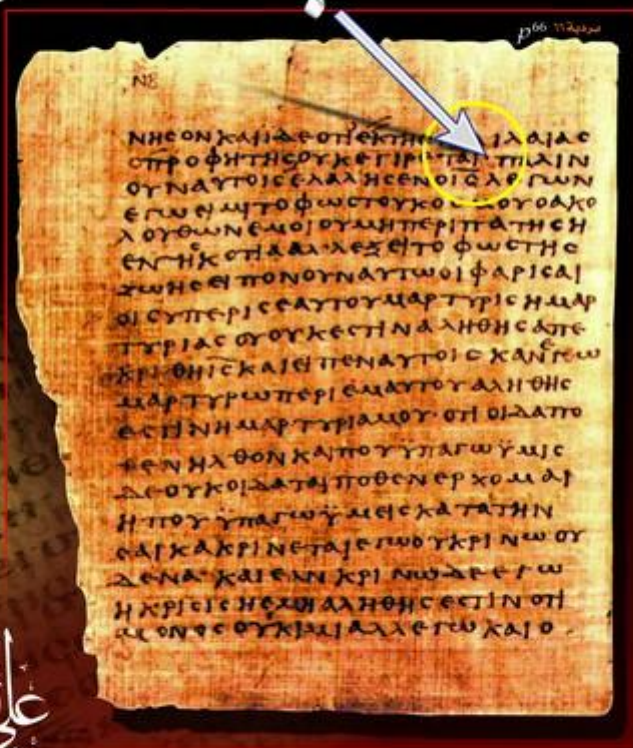 p⁶⁶ بردية٦٦
ΝΒ
ΝΗϹΟΝΚΑΙΙΔΕΟΤΙΕΚΤΗϹ ΙΛΑΙΑϹ
ΟΠΡΟΦΗΤΗϹΟΥΚΕΓΙΡΕΤΑΙ· ΠΑΛΙΝ
ΟΥΝΑΥΤΟΙϹΕΛΑΛΗϹΕΝΟΙ̅Ϲ̅ΛΕΓΩΝ
ΕΓΩΕΙΜΙΤΟΦΩϹΤΟΥΚΟ ΜΟΥΟΑΚΟ
ΛΟΥΘΩΝΕΜΟΙΟΥΜΗΠΕΡΙΠΑΤΗϹΗ
ΕΝΤΗϹΚΟΤΙΑΑΛΛΕΞΕΙΤΟΦΩϹΤΗϹ
ΖΩΗϹΕΙΠΟΝΟΥΝΑΥΤΩΟΙΦΑΡΙϹΑΙ
ΟΙϹΥΠΕΡΙϹΕΑΥΤΟΥΜΑΡΤΥΡΙϹΗΜΑΡ
ΤΥΡΙΑϹΟΥΟΥΚΕϹΤΙΝΑΛΗΘΗϹΑΠΕ
ΚΡΙΘΗΙ̅Ϲ̅ΚΑΙΕΙΠΕΝΑΥΤΟΙϹΚΑΝΕΓΩ
ΜΑΡΤΥΡΩΠΕΡΙΕΜΑΥΤΟΥΑΛΗΘΗϹ
ΕϹΤΙΝΗΜΑΡΤΥΡΙΑΜΟΥ·ΟΤΙΟΙΔΑΠΟ
ΘΕΝΗΛΘΟΝΚΑΙΠΟΥΫΠΑΓΩΫΜΙϹ
ΔΕΟΥΚΟΙΔΑΤΑΙΠΟΘΕΝΕΡΧΟΜΑΙ
ΗΠΟΥΫΠΑΓΩΫΜΕΙϹΚΑΤΑΤΗΝ
ϹΑΡΚΑΚΡΙΝΕΤΑΙΕΓΩΟΥΚΡΙΝΩΟΥ
ΔΕΝΑ·ΚΑΙΕΑΝΚΡΙΝΩΔΕΕΓΩ
ΗΚΡΙϹΙϹΗΕΜΗΑΛΗΘΗϹΕϹΤΙΝΟΤΙ
ΜΟΝΟϹΟΥΚΙΜΙΑΛΛΕΓΩΚΑΙΟ